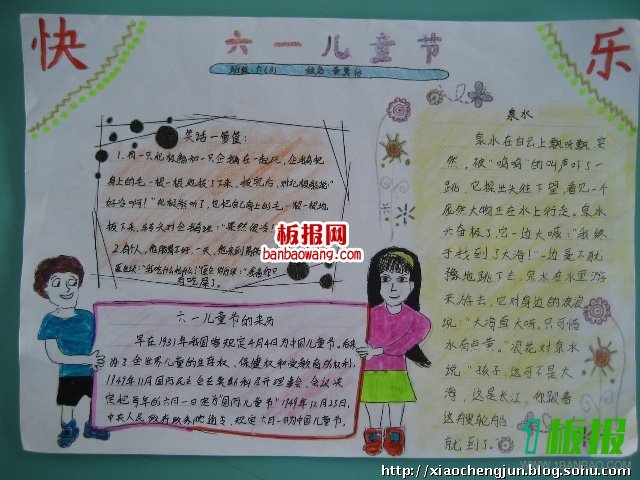 快
六一儿童节
乐
班级:六(3) 姓名:
笑话一箩筐:
1.有一只北极熊和一只企鹅在一起玩,企鹅把
身上的毛一根一根地拔了下来,拔完后,对北极熊说:"
好冷啊!"北极熊听了,也把自己身上的毛一根一根地
拔下来,转头对企鹅说:"果然很冷!"
2.有个人,他
板报网
banbaowang.com
六一儿童节的来历
早在1931年我国曾规定4月4日为中国儿童节。
办了全世界儿童的生存权、保健权和受教育的权利,
1949年11月国际民主妇女联
定把每年的六月一日定为"国际儿童节"1949年12月23日,
中央人民政府政务院通令,规定六一为中国儿童节。
泉水
泉水在白云上飘呀飘,突
然,被"呜呜"的叫声吓了一
跳,它探出头往下望,看见一个
庞然大物正在水上行走。泉水
六奋极了,它一边大喊:"我终
于找到了大海!"一边毫不犹
豫地跳下去,泉水在水里游呀
游呀游,它对身边的浪花
说:"大海真大呀,只可惜
水有点黄。"浪花对泉水
说:"孩子,这可不是大
海,这是长江,你跟着
这艘轮船
就到了。
1板报
WWW.1BANBAO.COM
http://xiaochengjun.blog.sohu.com